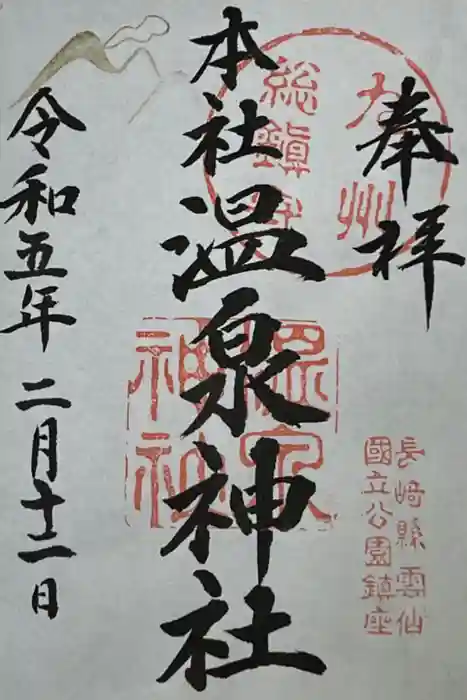 奉拝
九州
総鎮守
本社温泉神社
温泉
神社
長崎縣雲仙
國立公園鎮座
令和五年二月十二日